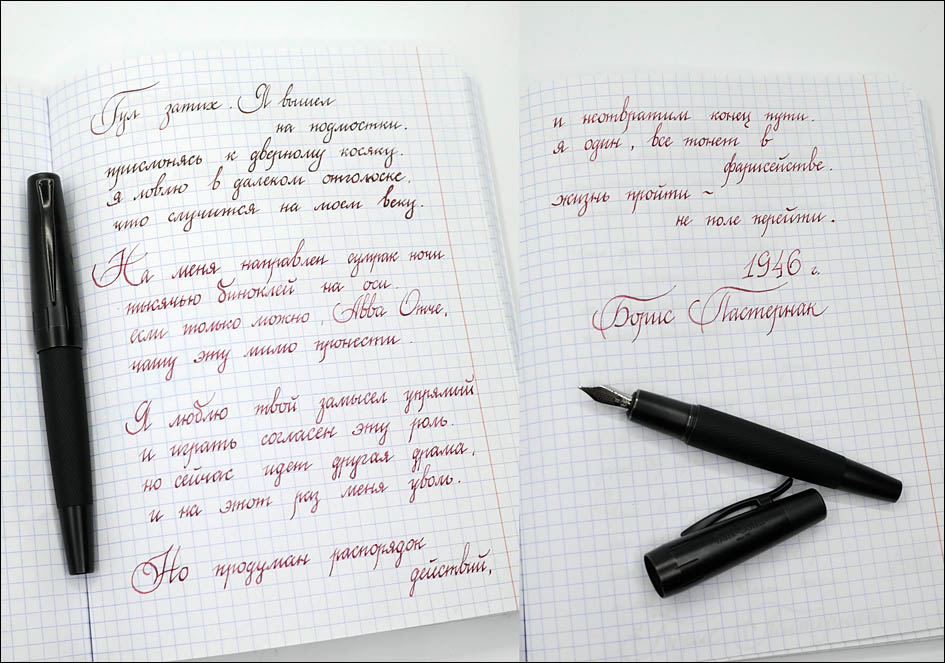 Гул затих. Я вышел
на подмостки.
прислонясь к дверному косяку.
я ловлю в далеком отголоске,
что случится на моем веку.
На меня направлен сумрак ночи
тысячью биноклей на оси.
если только можно, Авва Отче,
чашу эту мимо пронести.
Я люблю твой замысел упрямый
и играть согласен эту роль.
но сейчас идет другая драма,
и на этот раз меня уволь.
Но продуман распорядок
действий,
и неотвратим конец пути.
я один, все тонет в
фарисействе.
жизнь пройти –
не поле перейти.
1946 г.
Борис Пастернак